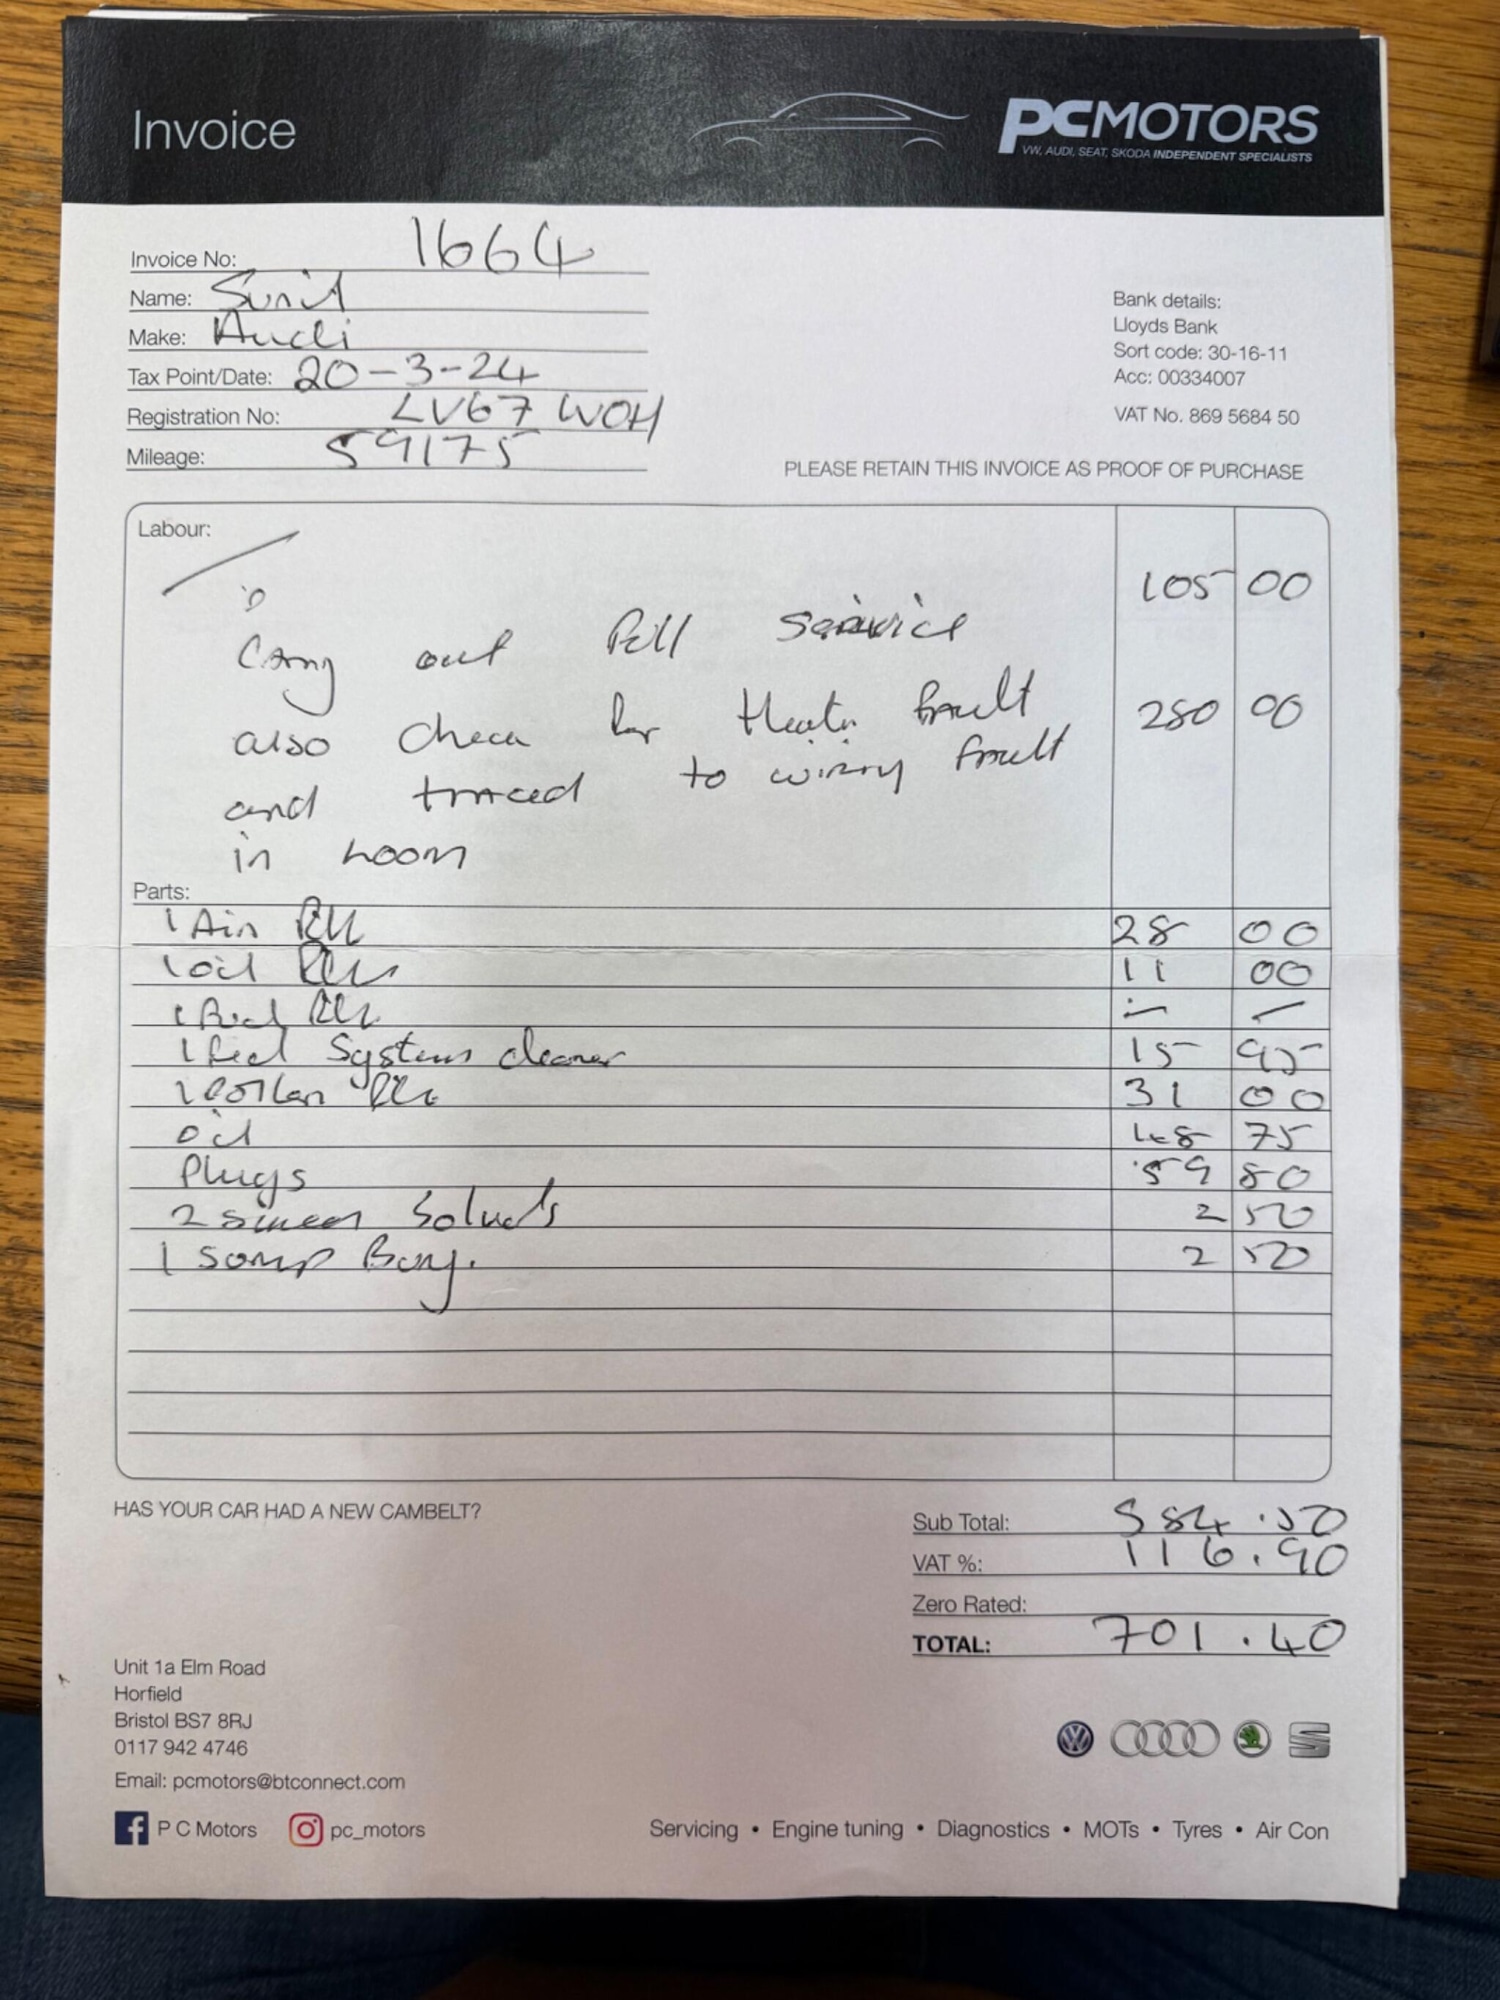 Invoice
PCMOTORS
VW, AUDI, SEAT, SKODA INDEPENDENT SPECIALISTS
Invoice No: 1664
Name: Sunil
Make: Audi
Tax Point/Date: 20-3-24
Registration No: LV67 WOH
Mileage: 59175
Bank details:
Lloyds Bank
Sort code: 30-16-11
Acc: 00334007
VAT No. 869 5684 50
PLEASE RETAIN THIS INVOICE AS PROOF OF PURCHASE
Labour:
Carry out full service 105 00
also check for Heater fault 280 00
and traced to wiring fault
in loom
Parts:
1 Air 28 00
1 oil 11 00
1
1 fuel System cleaner 15 95
1 Pollen 31 00
oil 48 75
Plugs 59 80
2 screen 2 50
1 sump Bung. 2 50
HAS YOUR CAR HAD A NEW CAMBELT?
Sub Total: 584.50
VAT %: 116.90
Zero Rated:
TOTAL: 701.40
Unit 1a Elm Road
Horfield
Bristol BS7 8RJ
0117 942 4746
Email: pcmotors@btconnect.com
P C Motors pc_motors
Servicing • Engine tuning • Diagnostics • MOTs • Tyres • Air Con